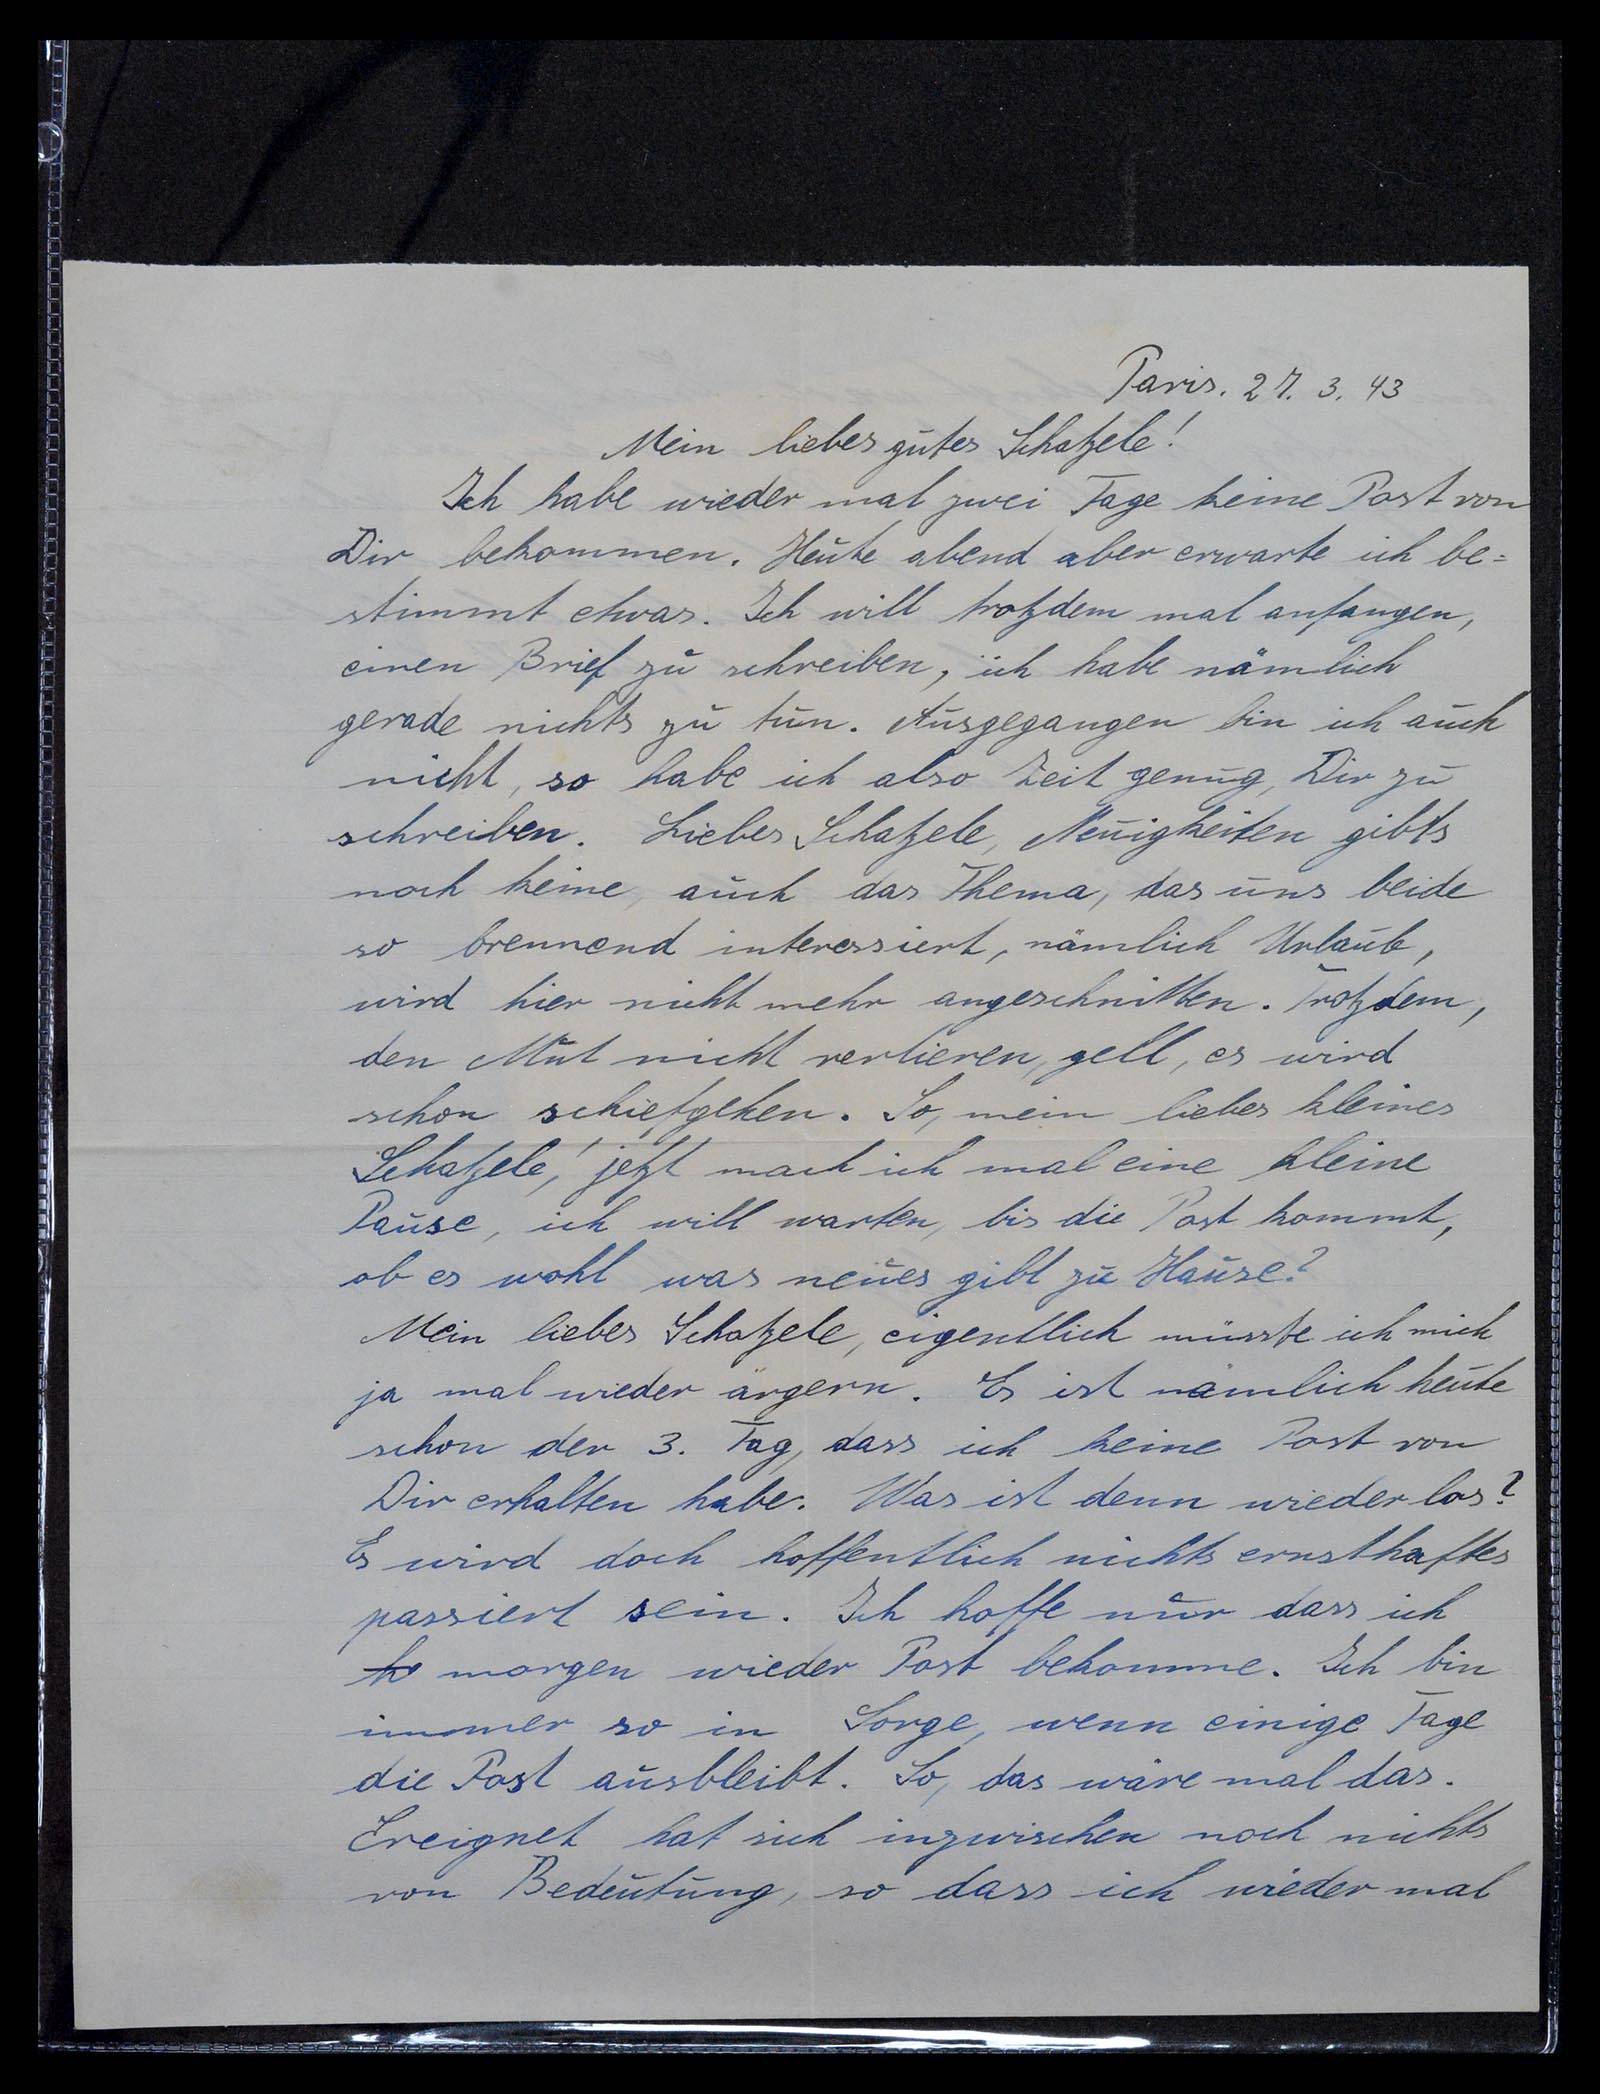 Paris. 27. 3. 43
Mein liebes gutes Schatzele!
Ich habe wieder mal zwei Tage keine Post von
Dir bekommen. Heute abend aber erwarte ich be=
stimmt etwas. Ich will trotzdem mal anfangen,
einen Brief zu schreiben, ich habe nämlich
gerade nichts zu tun. Ausgegangen bin ich auch
nicht, so habe ich also Zeit genug, Dir zu
schreiben. Liebes Schatzele, Neuigkeiten gibts
noch keine, auch das Thema, das uns beide
so brennend interessiert, nämlich Urlaub,
wird hier nicht mehr angeschnitten. Trotzdem,
den Mut nicht verlieren, gell, es wird
schon schiefgehen. So, mein liebes kleines
Schatzele! jetzt mach ich mal eine kleine
Pause, ich will warten, bis die Post kommt,
ob es wohl was neues gibt zu Hause?
Mein liebes Schatzele, eigentlich müsste ich mich
ja mal wieder ärgern. Es ist nämlich heute
schon der 3. Tag, dass ich keine Post von
Dir erhalten habe. Was ist denn wieder los?
Es wird doch hoffentlich nichts ernsthaftes
passiert sein. Ich hoffe nur dass ich
morgen wieder Post bekomme. Ich bin
immer so in Sorge, wenn einige Tage
die Post ausbleibt. So, das wäre mal das.
Ereignet hat sich inzwischen noch nichts
von Bedeutung, so dass ich wieder mal